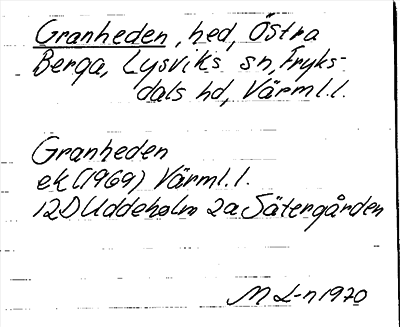 Granheden, hed, Östra
Berga, Lysviks sn, Fryks-
dals hd, Värml.l.
Granheden
ek (1969) Värml.l.
12D Uddeholm 2a Sätergården
M L-n 1970